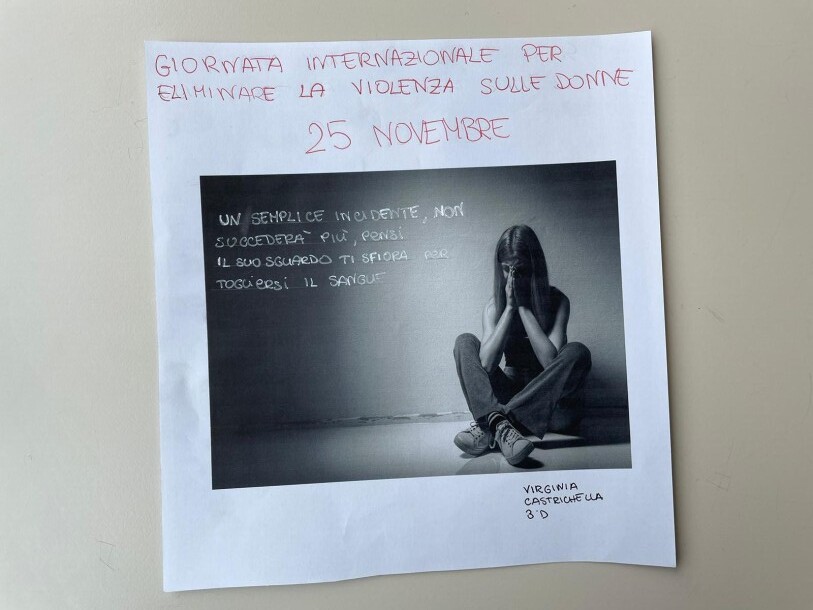 GIORNATA INTERNAZIONALE PER
ELIMINARE LA VIOLENZA SULLE DONNE
25 NOVEMBRE
UN SEMPLICE INCIDENTE, NON
SUCCEDERÀ PIÙ, PENSI
IL SUO SGUARDO TI SFIORA PER
TOGLIERSI IL SANGUE
VIRGINIA
CASTRICHELLA
3°D